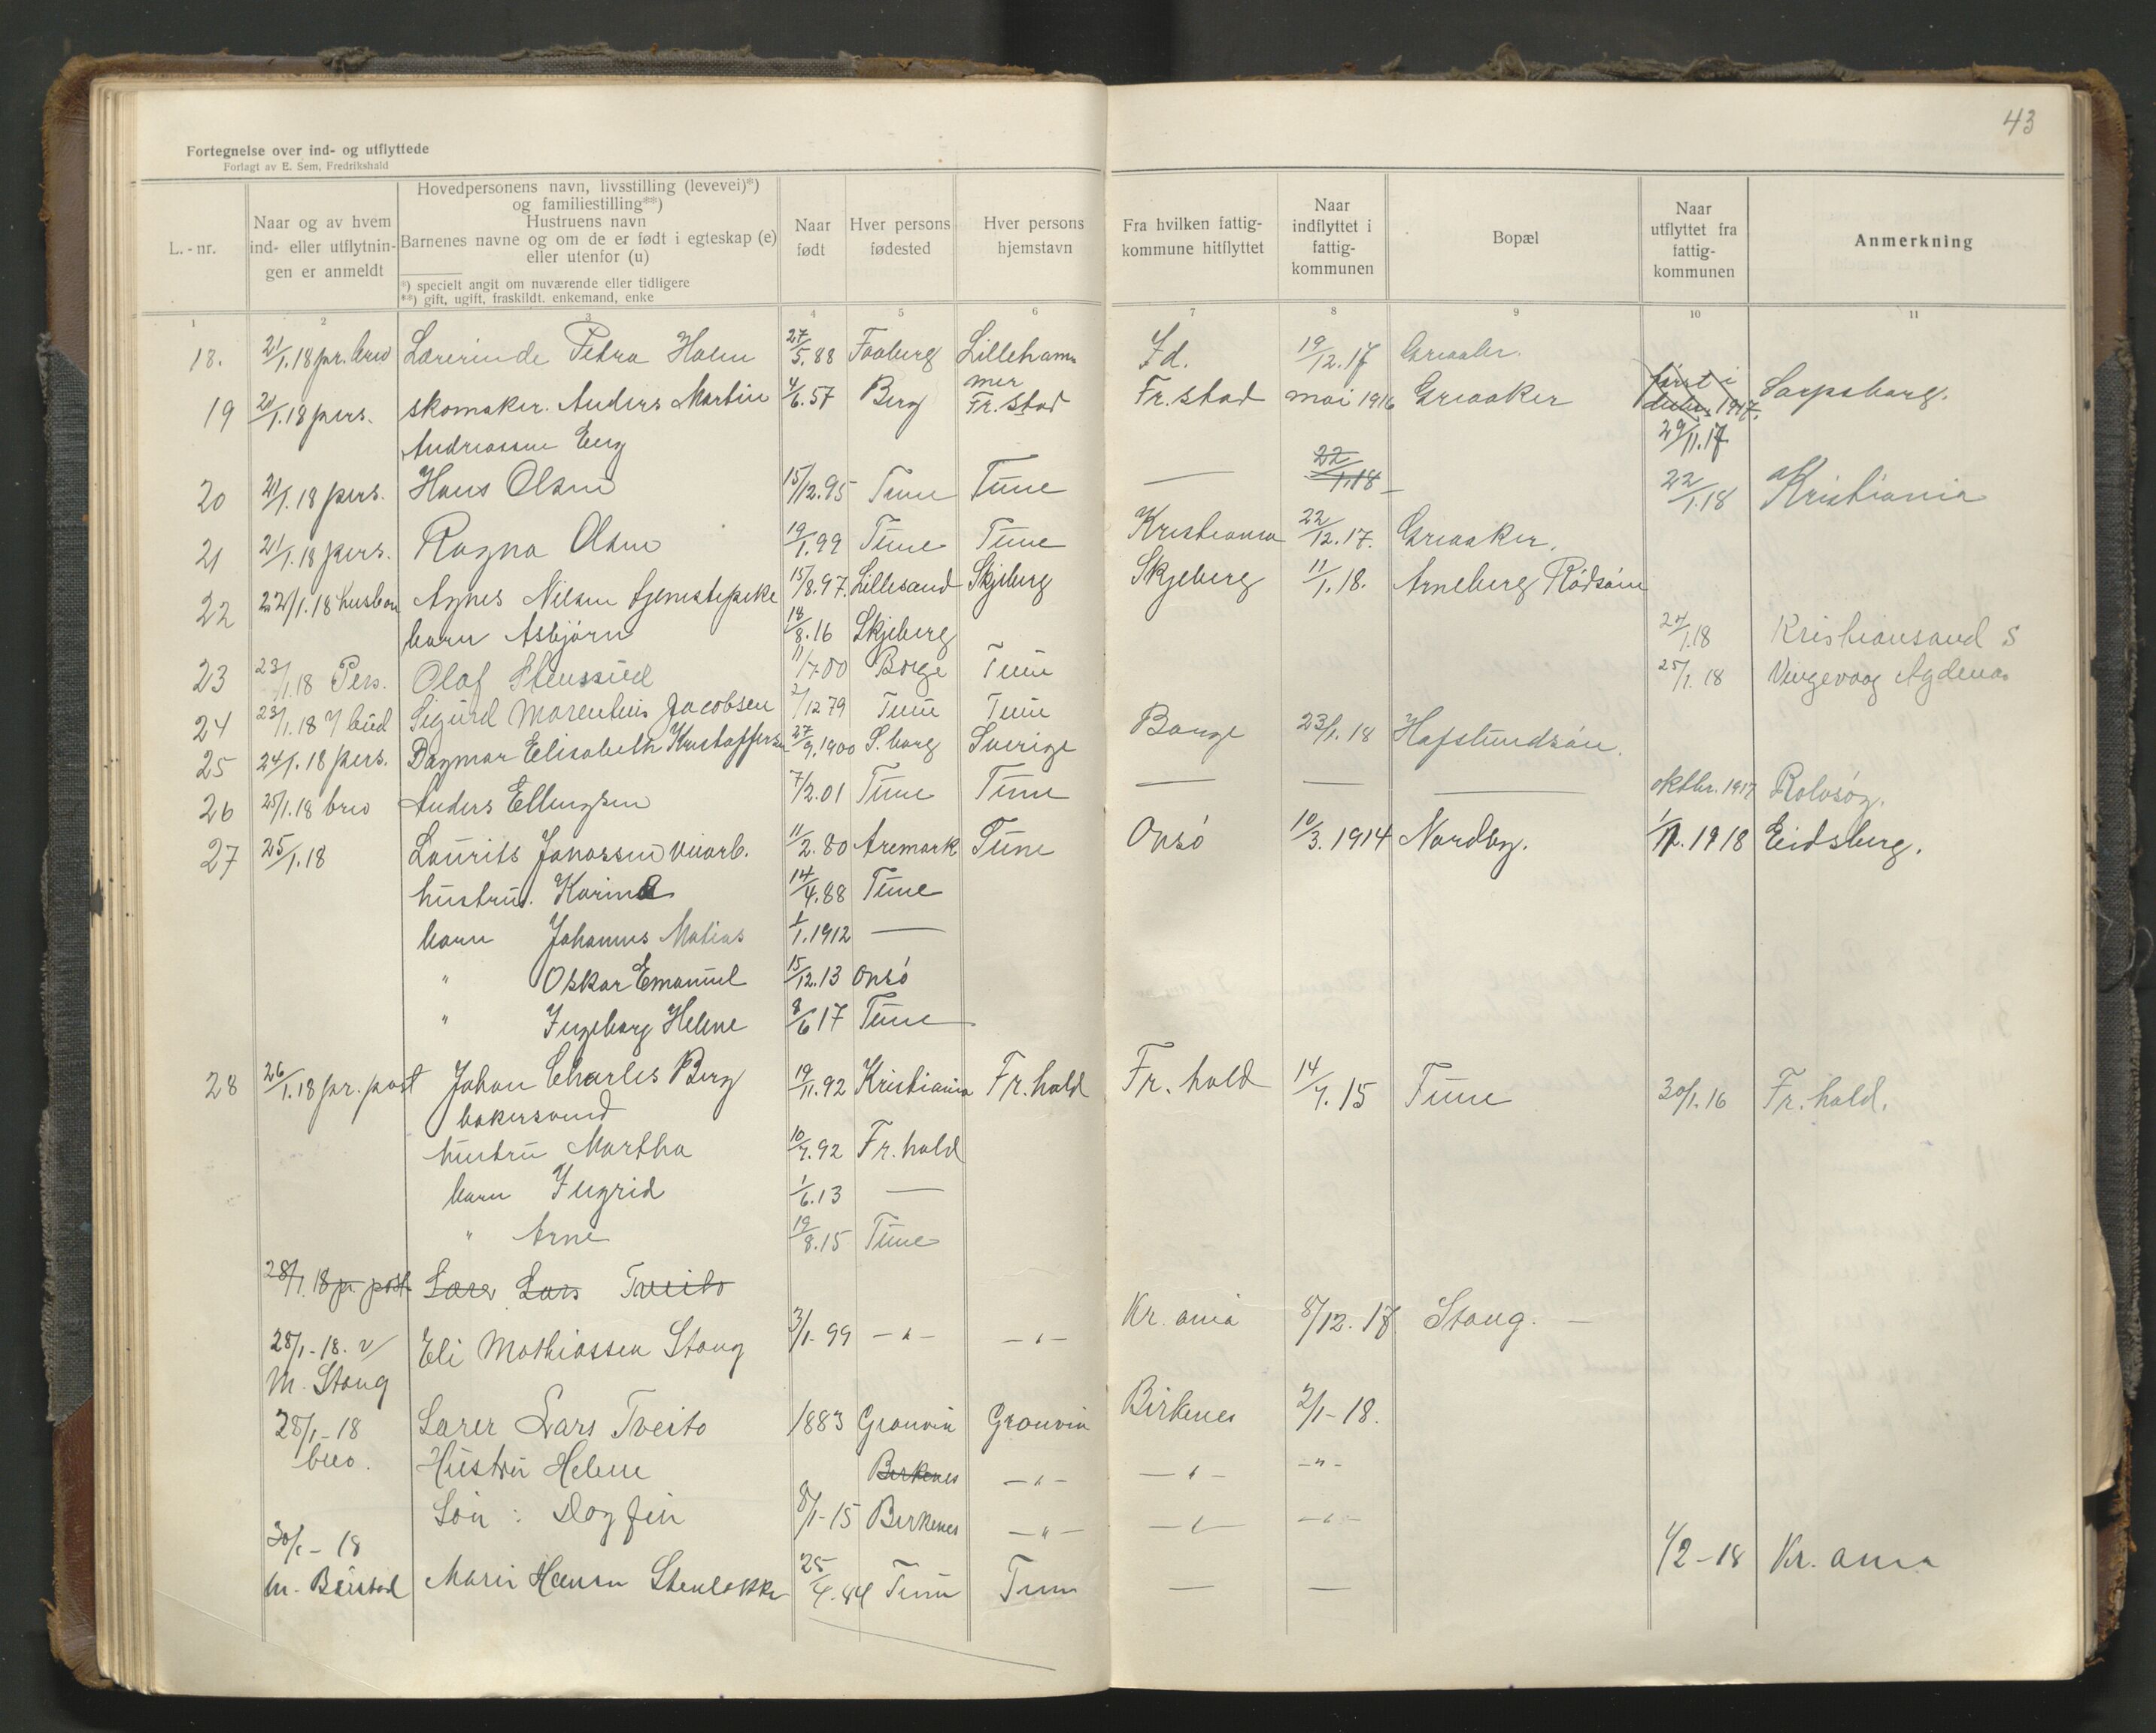 43
Fortegnelse over ind- og utflyttede
Forlagt av E. Sem, Fredrikshald
L.-nr.
Naar og av hvem ind- eller utflytnin-gen er anmeldt
Hovedpersonens navn, livsstilling (levevei)*)
og familiestilling**)
Hustruens navn
Barnenes navne og om de er født i egteskap (e)
eller utenfor (u)
*) specielt angit om nuværende eller tidligere
**) gift, ugift, fraskildt. enkemand, enke
Naar født
Hver persons fødested
Hver persons hjemstavn
Fra hvilken fattig-kommune hitflyttet
Naar indflyttet i fattig-kommunen
Bopæl
Naar utflyttet fra fattig-kommunen
Anmerkning
1 2 3 4 5 6 7 8 9 10 11
18. 21/1.18 pr. brev Lærerinde Petra Holm 27/5.88 Faaberg Lilleham- Id. 19/12.17 Greaaker.
mer
19 21/1.18 pers. skomaker. Anders Martin 4/6.57 Berg Fr.stad Fr.stad mai 1916 Greaaker først i decbr. 1917. Sarpsborg.
Andreassen Eng 29/11.17
20 21/1.18 pers. Hans Olsen 15/12.95 Tune Tune — 22/1.18 — 22/1.18 Kristiania
21 21/1.18 pers. Ragna Olsen 19/1.99 Tune Tune Kristiania 22/12.17. Greaaker.
22 22/1.18 husbon Agnes Nilsen tjenestepike 15/8.97. Lillesand Skjeberg Skjeberg 11/1.18. Arneberg Rødsøen
barn Asbjørn 18/8.16 Skjeberg 24/1.18 Kristiansand S
23 23/1.18 Pers. Olaf Stensrud 11/7.00 Borge Tune 25/1.18 Vingevaag Agdenes
24 23/1.18 v/ bud Sigurd Marentius Jacobsen 2/12 79 Tune Tune
25 24/1.18 pers. Dagmar Elisabeth Kristoffersen 27/9.1900 S.borg Sverige Borge 23/1.18 Hafslundsøen.
26 25/1.18 brev Anders Ellingsen 7/2.01 Tune Tune — — — oktbr. 1917 Rolvsøy.
27 25/1.18 Laurits Johansen veiarb. 11/2.80 Aremark Tune Onsø 10/3.1914 Nordby. 1/1.1918 Eidsberg.
hustru. Karine 14/4.88 Tune
barn Johannes Matias 1/1.1912 —
" Oskar Emanuel 15/12.13 Onsø
" Ingeborg Helene 8/6 17 Tune
28 26/1.18 pr. post Johan Charles Berg 19/11.92 Kristiania Fr.hald Fr.hald 14/7.15 Tune 30/1.16 Fr.hald.
bakersvend
hustru Martha 10/7.92 Fr.hald
barn Ingrid 1/6.13 —
" Arne 19/8.15 Tune
28/1.18 pr. post Lærer Lars Tveito
28/1-18. v/ Eli Mathiassen Stang 3/1-99 — " — — " — Kr.ania 8/12.17 Stang. —
M. Stang
28/1-18 Lærer Lars Tveito 1883 Granvin Granvin Birkenes 2/1-18.
brev. Hustru Helene Birkenes — " — — " — — " —
Søn : Dagfin 8/1-15 Birkenes — " — — " — — " —
30/1-18
M. Bærstad Marie Hansen Stenløkke 25/4.44 Tune Tune — — 1/2-18 Kr.ania